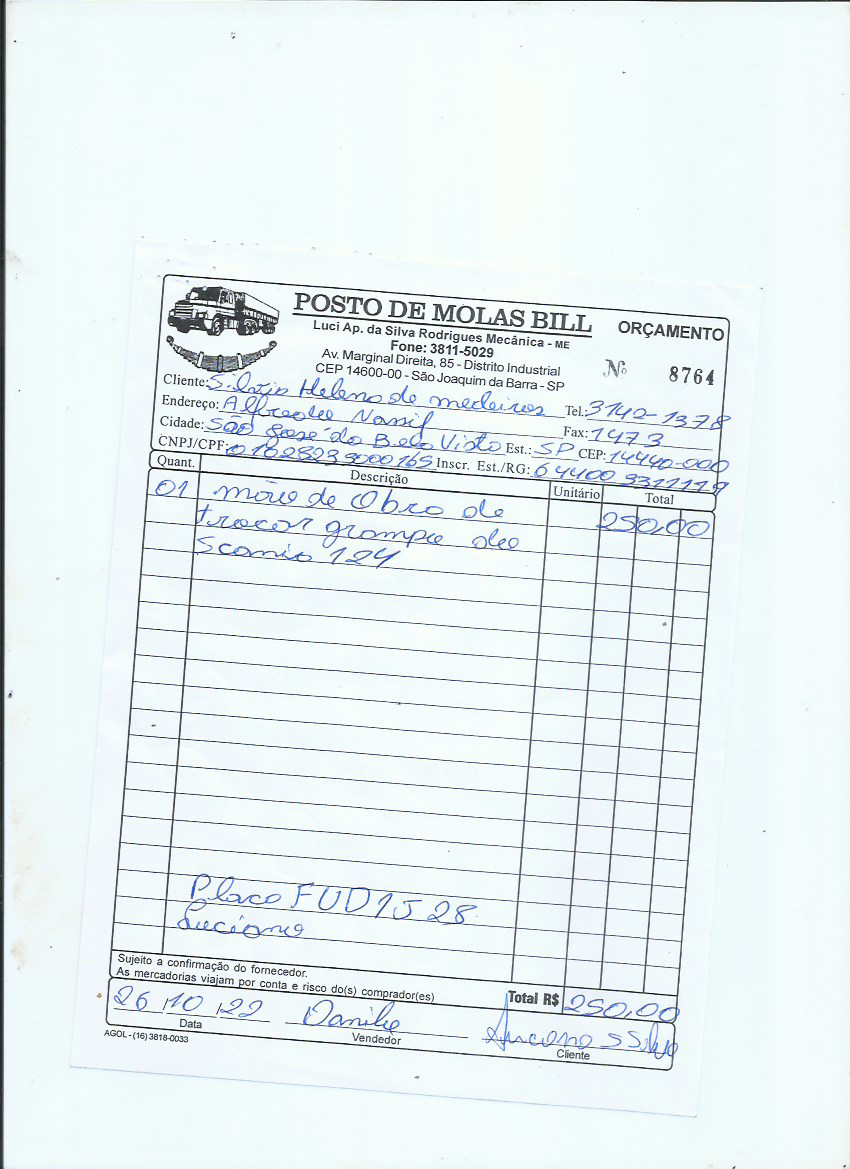 POSTO DE MOLAS BILL ORÇAMENTO
Luci Ap. da Silva Rodrigues Mecânica - ME
Fone: 3811-5029
Av. Marginal Direita, 85 - Distrito Industrial
CEP 14600-00 - São Joaquim da Barra - SP
Nº 8764
Cliente: Helena de medeiros Tel.: 3142-1378
Endereço: Alfredo Nassif Fax: 1473
Cidade: São José da Bela Vista Est.: SP CEP: 14440-000
CNPJ/CPF: 01628233000165 Inscr. Est./RG: 64400 3311119
Quant. Descrição Unitário Total
01 mão de Obra de 250,00
trocar grampo de
Scania 124
Placa FUD1J28
Luciano
Sujeito a confirmação do fornecedor.
As mercadorias viajam por conta e risco do(s) comprador(es)
Total R$ 250,00
26,10,22 Danilo Luciano S Silva
Data Vendedor Cliente
AGOL - (16) 3818-0033